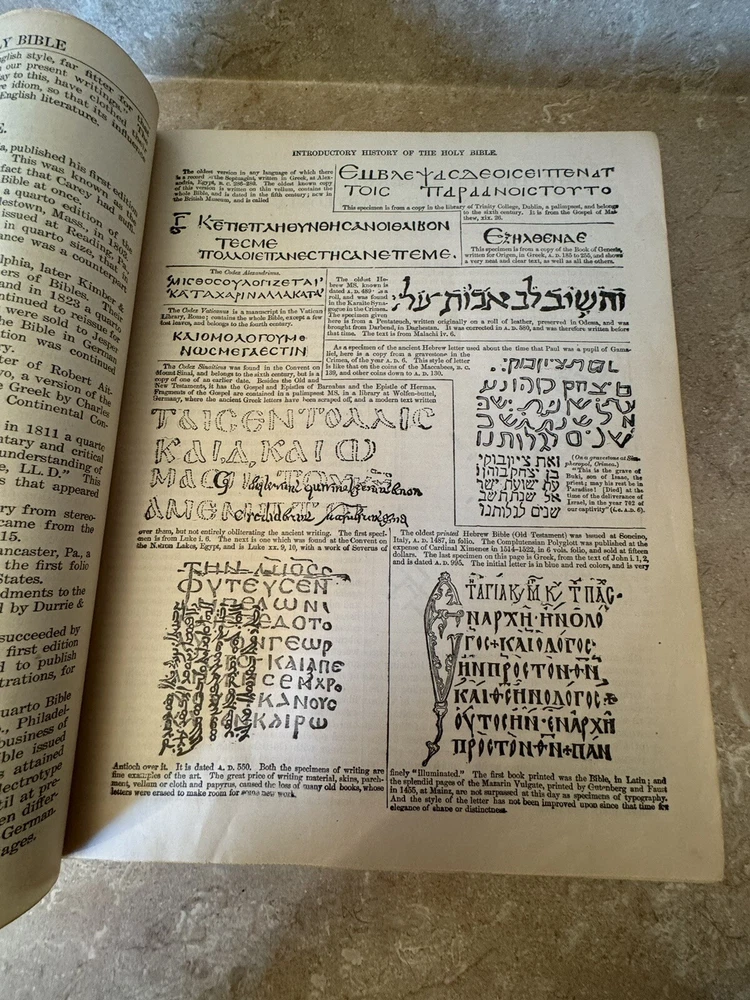 Y BIBLE
nglish style, far fitter for the
our present writings.
ay to this, have clothed their
re idiom, so that its influence
English literature.
E.
, published his first edition
This was known as
fact that Carey had
Bible at once.
a quarto edition of the
lestown, Mass., in 1803,
issued at Reading, Pa.,
in quarto size, that
ance was a counterpart
lphia, later Kimber &
ers of Bibles. Their
and in 1823 a quarto
continued to reissue for
were sold to Jesper
he Bible in German
tion was continued
ry.
ter of Robert Ait.
o, a version of the
Greek by Charles
Continental Con-
in 1811 a quarto
entary and critical
understanding of
e, LL. D." This
s that appeared
ry from stereo-
came from the
ext is 1815.
ancaster, Pa., a
the first folio
States.
ndments to the
d by Durrie &
succeeded by
first edition
d to publish
trations, for
uarto Bible
., Philadel-
business of
ble issued
s attained
lectrotype
til at pre-
en differ-
German.
ages.
INTRODUCTORY HISTORY OF THE HOLY BIBLE.
The oldest version in any language of which there
is a record is the Septuagint, written in Greek, at Alex-
andria, Egypt, B. C. 286-285. The oldest known copy
of this version is written on thin vellum, contains the
whole Bible, and is dated in the fifth century; now in
the British Museum, and is called
ΕΜΒΛΕΨΑCΔΕΟΙCΕΙΠΕΝΑΤ
ΤΟΙC ΠΑΡΑΑΝΟΙCΤΟΥΤΟ
This specimen is from a copy in the library of Trinity College, Dublin, a palimpsest, and belongs
to the sixth century. It is from the Gospel of Mat-
thew, xix. 26.
ΚΕΠΕΠΛΗΘΥΝΘΗCΑΝΟΙΘΛΙΒΟΝ
ΤΕCΜΕ
ΠΟΛΛΟΙΕΠΑΝΕCΤΗCΑΝΕΠΕΜΕ.
ΕΞΗΛΘΕΝΔΕ
This specimen is from a copy of the Book of Genesis,
written for Origin, in Greek, A. D. 185 to 255, and shows
a very neat and clear text, as well as all the others.
The Codex Alexandrinus.
ΜΙCΘΟCΟΥΛΟΓΙΖΕΤΑΙ
ΚΑΤΑΧΑΡΙΝΑΛΛΑΚΑΤΑ
The Codex Vaticanus is a manuscript in the Vatican
Library, Rome; contains the whole Bible, except a few
lost leaves, and belongs to the fourth century.
ΚΑΙΟΜΟΛΟΓΟΥΜΕ
ΝΩCΜΕΓΑΕCΤΙΝ
The oldest He-
brew MS. known is
dated A. D. 489; is a
roll, and was found
in the Karaite Syna-
gogue in the Crimea.
The specimen given
here is from a Pentateuch, written originally on a roll of leather, preserved in Odessa, and was
brought from Darbend, in Daghestan. It was corrected in A. D. 580, and was therefore written before
that time. The text is from Malachi iv. 6.
והשיב לב אבות על
As a specimen of the ancient Hebrew letter used about the time that Paul was a pupil of Gama-
liel, here is a copy from a gravestone in the
Crimea, of the year A. D. 6. This style of letter
is like that on the coins of the Maccabees, B. C.
139, and other coins down to A. D. 130.
The Codex Sinaiticus was found in the Convent on
Mount Sinai, and belongs to the sixth century, but is a
copy of one of an earlier date. Besides the Old and
New Testaments, it has the Gospel and Epistles of Barnabas and the Epistle of Hermas.
Fragments of the Gospel are contained in a palimpsest MS. in a library at Wolfen-buttel,
Germany, where the ancient Greek letters have been scraped off, and a modern text written
ΤΑΙCΕΝΤΟΛΑΙC
ΚΑΙΔΙΚΑΙΩ
ΑΜΕΜ
ואת ציון בוקי
בן יצחק כוהן נ'ע
שנים לגלותנו
(On a gravestone at Sim-
pheropol, Crimea.)
"This is the grave of
Buki, son of Isaac, the
priest; may his rest be in
Paradise! [Died] at the
time of the deliverance of
Israel, in the year 702 of
our captivity" (i.e. A.D. 6).
over them, but not entirely obliterating the ancient writing. The first speci-
men is from Luke i. 6. The next is one which was found at the Convent at
the Natron Lakes, Egypt, and is Luke xx. 9, 10, with a work of Severus of
The oldest printed Hebrew Bible (Old Testament) was issued at Soncino,
Italy, A. D. 1487, in folio. The Complutensian Polyglott was published at the
expense of Cardinal Ximenes in 1514-1522, in 6 vols. folio, and sold at fifteen
dollars. The last specimen on this page is Greek, from the text of John i. 1, 2,
and is dated A. D. 995. The initial letter is in blue and red colors, and is very
ΤΗΝ
ΦΥΤΕΥCΕΝ
ΠΕΛΩΝ
ΕΔΟΤΟ
ΝΓΕΩΡ
ΚΑΙΑΠΕ
CΕΝΧΡΟ
ΚΑΝΟΥC
ΝΚΑΙΡΩ
ΝΑΡΧΗ·ΗΝΟΛΟ
ΓΟC+ΚΑΙΟΛΟΓΟC·
ΗΝΠΡΟCΤΟΝ·ΘΝ,
ΚΑΙ·ΘC·ΗΝΟΛΟΓΟC
ΟΥΤΟCΗΝ·ΕΝΑΡΧΗ
ΠΡΟCΤΟΝ·ΘΝ+ΠΑΝ
Antioch over it. It is dated A. D. 550. Both the specimens of writing are
fine examples of the art. The great price of writing material, skins, parch-
ment, vellum or cloth and papyrus, caused the loss of many old books, whose
letters were erased to make room for some new work.
finely "Illuminated." The first book printed was the Bible, in Latin; and
the splendid pages of the Mazarin Vulgate, printed by Gutenberg and Faust
in 1455, at Mainz, are not surpassed at this day as specimens of typography.
And the style of the letter has not been improved upon since that time for
elegance of shape or distinctness.